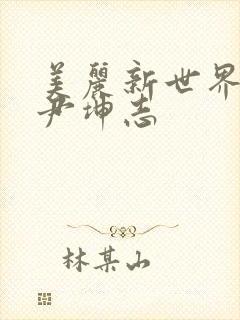 美麗新世界
尹坤志
林某山